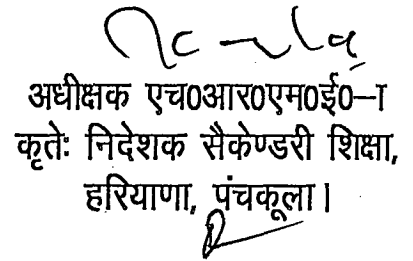 अधीक्षक एच0आर0एम0ई0–I
कृतेः निदेशक सैकेण्डरी शिक्षा,
हरियाणा, पंचकूला।